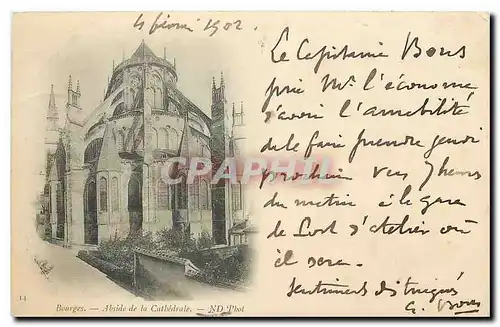 4 février 1902.
Le Capitaine Bous
prie Mr l'économe
d'avoir l'amabilité
de le faire prendre jeudi
prochain vers 7 heures
du matin à la gare
de
il sera.
Sentiments distingués
G. Bous
CPARAMA.COM
14
Bourges. — Abside de la Cathédrale. — ND Phot